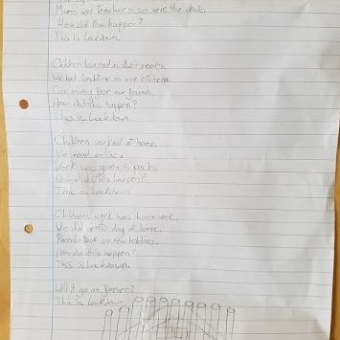 Mums was teachers so were the dads.
How did this happen?
This is lockdown.
Children learned in their rooms.
We had lunchtime in our kitchens.
Far away from our friends.
How did this happen?
This is lockdown.
Children worked at home.
We
Work was given in packs.
How did this happen?
This is lockdown.
Childrens work was homework.
We did day at home.
new hobbies.
How did this happen?
This is lockdown.
Will it go on forever?
This is lockdown.